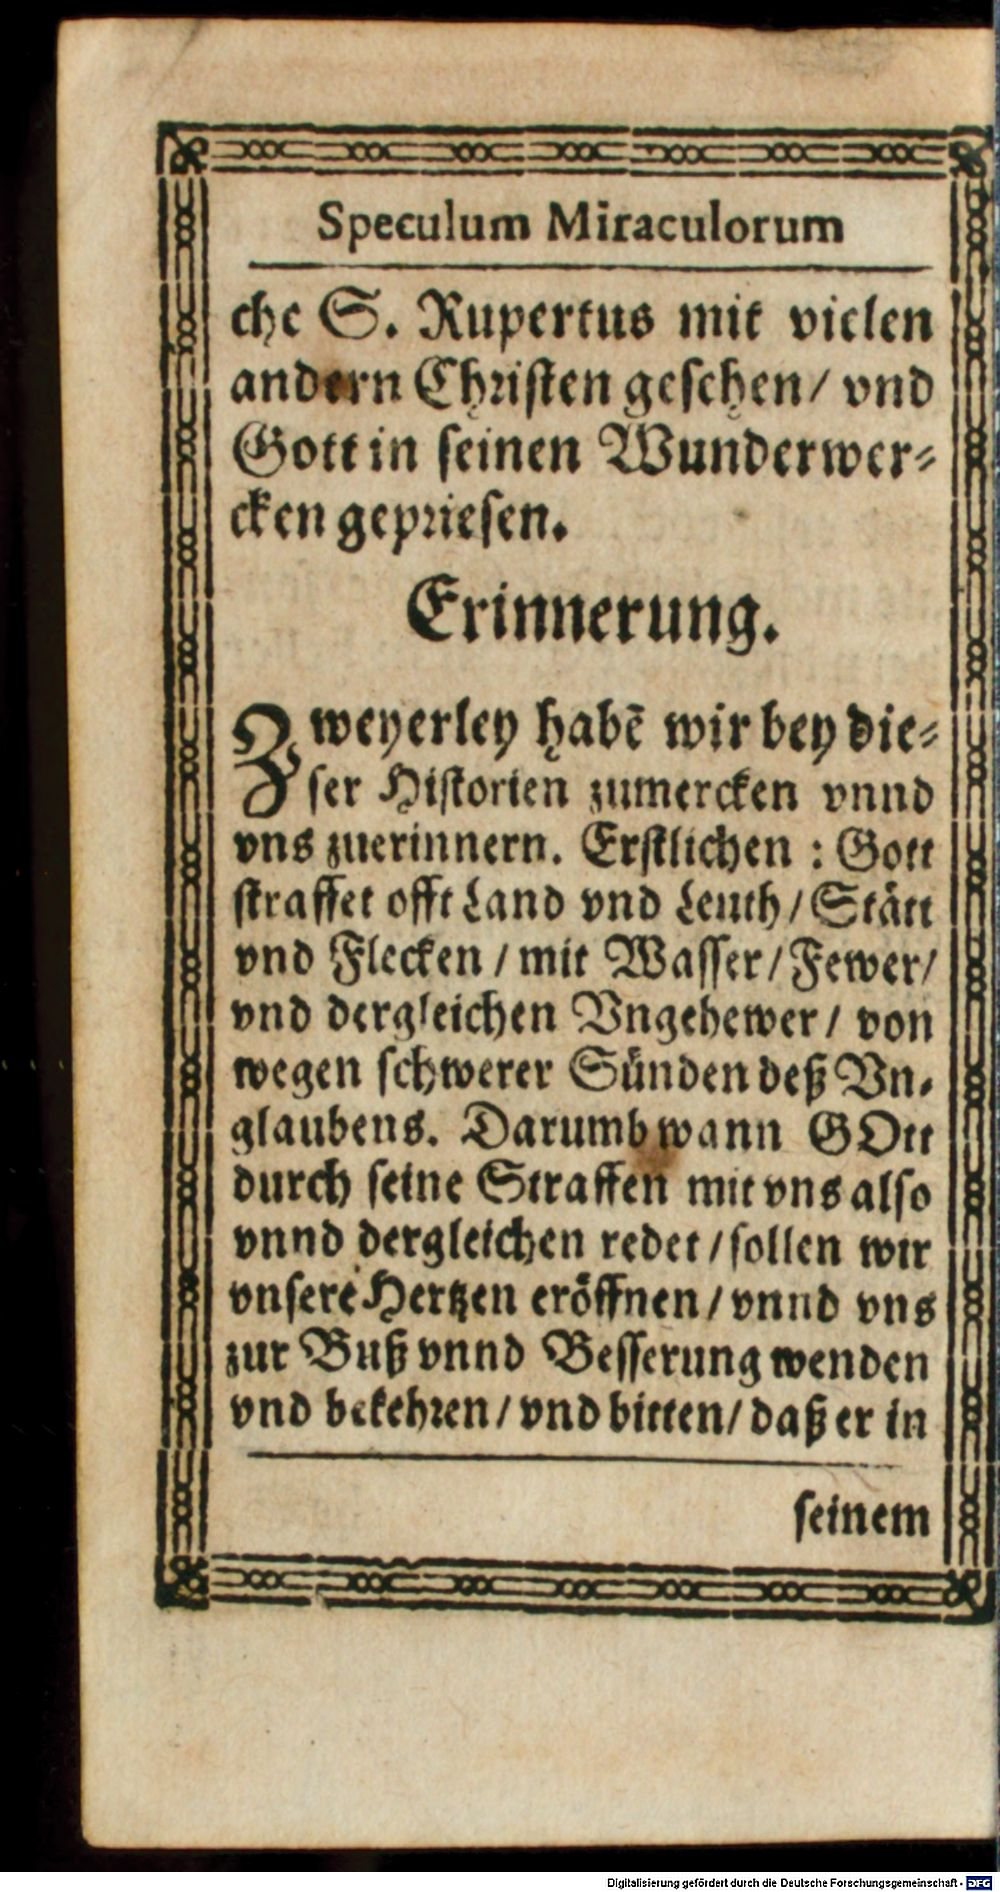 Speculum Miraculorum
che S. Rupertus mit vielen
andern Christen gesehen/ vnd
Gott in seinen Wunderwer-
cken gepriesen.
Erinnerung.
Zweyerley habē wir bey die-
ser Historien zumercken vnnd
vns zuerinnern. Erstlichen : Gott
straffet offt Land vnd Leuth/ Stätt
vnd Flecken / mit Wasser/ Fewer/
vnd dergleichen Vngehewer / von
wegen schwerer Sünden deß Vn-
glaubens. Darumb wann GOtt
durch seine Straffen mit vns also
vnnd dergleichen redet / sollen wir
vnsere Hertzen eröffnen / vnnd vns
zur Buß vnnd Besserung wenden
vnd bekehren/ vnd bitten/ daß er in
seinem
Digitalisierung gefördert durch die Deutsche Forschungsgemeinschaft - DFG